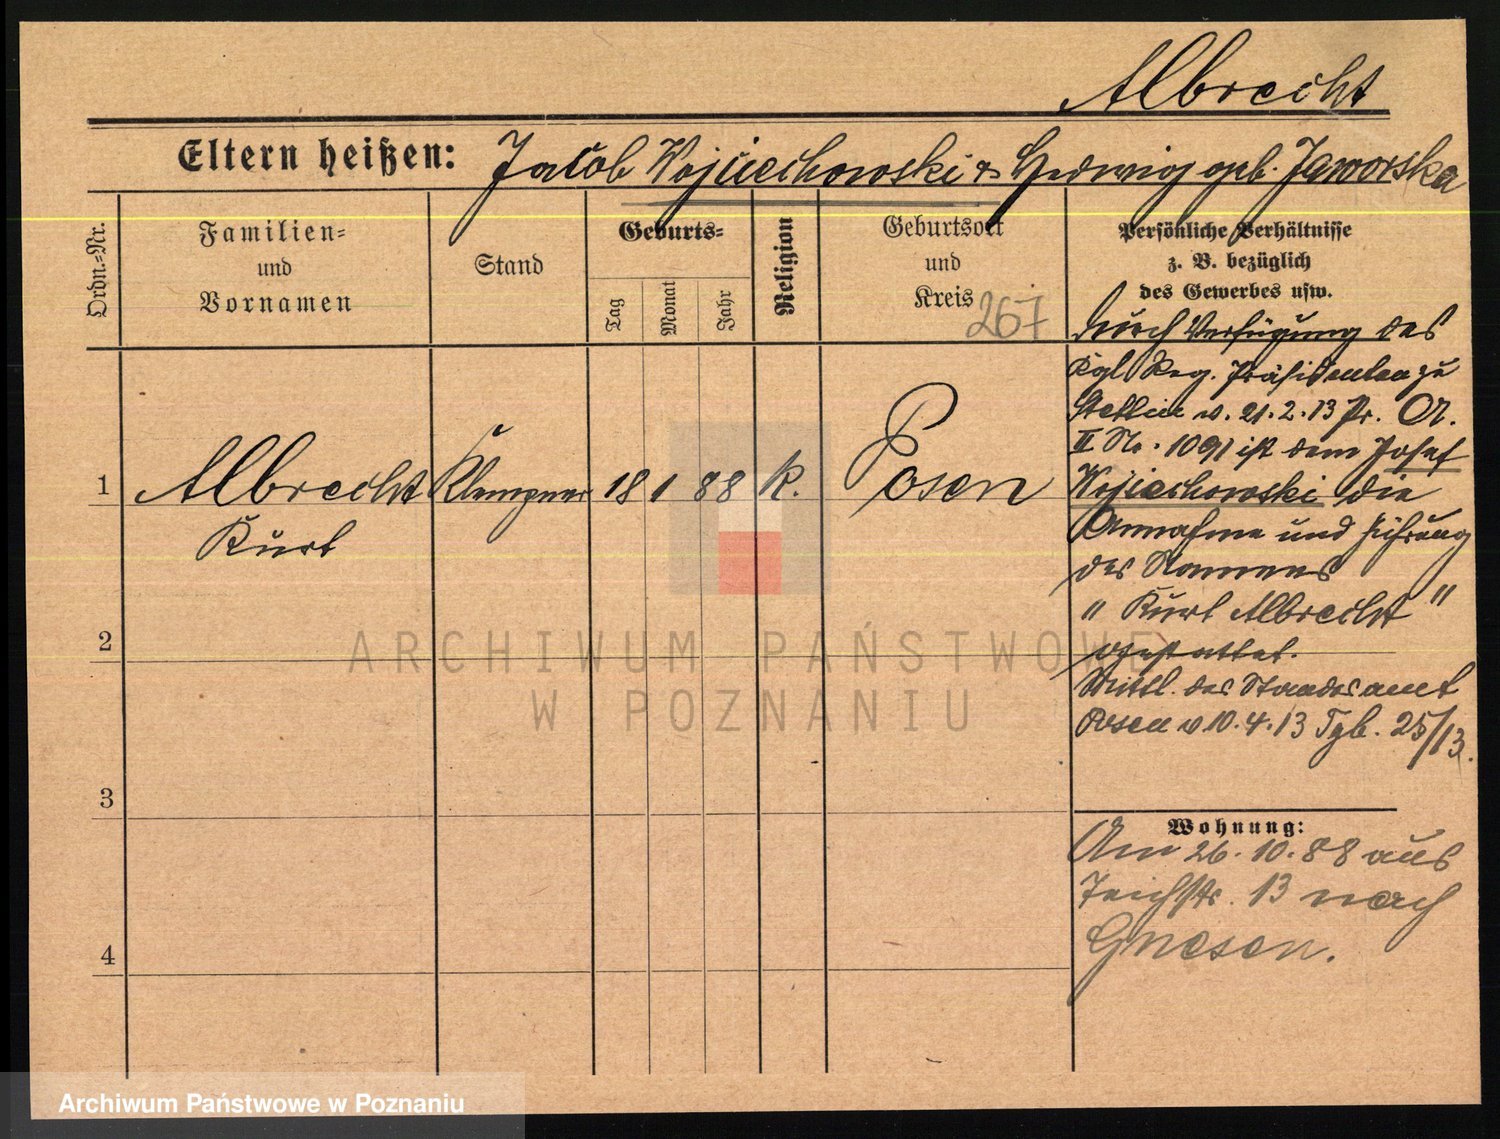 Albrecht
Eltern heißen: Jakob Wojciechowski & Hedwig geb. Jaworska
Ordn.-Nr.
Familien-
und
Vornamen
Stand
Geburts-
Tag
Monat
Jahr
Religion
Geburtsort
und
Kreis
267
Persönliche Verhältnisse
z. B. bezüglich
des Gewerbes usw.
1
Albrecht
Kurt
Klempner
18
1
88
K.
Posen
Durch Verfügung des
Kgl. Reg. Präsidenten zu
Stettin v. 21.2.13 Pr. A.
II No. 1091 ist dem Josef
Wojciechowski die
Annahme und Führung
des Namens
"Kurt Albrecht"
gestattet.
Mittl. des Standesamt
Posen v 10.4.13 Tgb. 25/13.
2
3
4
Wohnung:
Am 26.10.88 aus
Teichstr. 13 nach
Gnesen.
ARCHIWUM PAŃSTWOWE
W POZNANIU
Archiwum Państwowe w Poznaniu